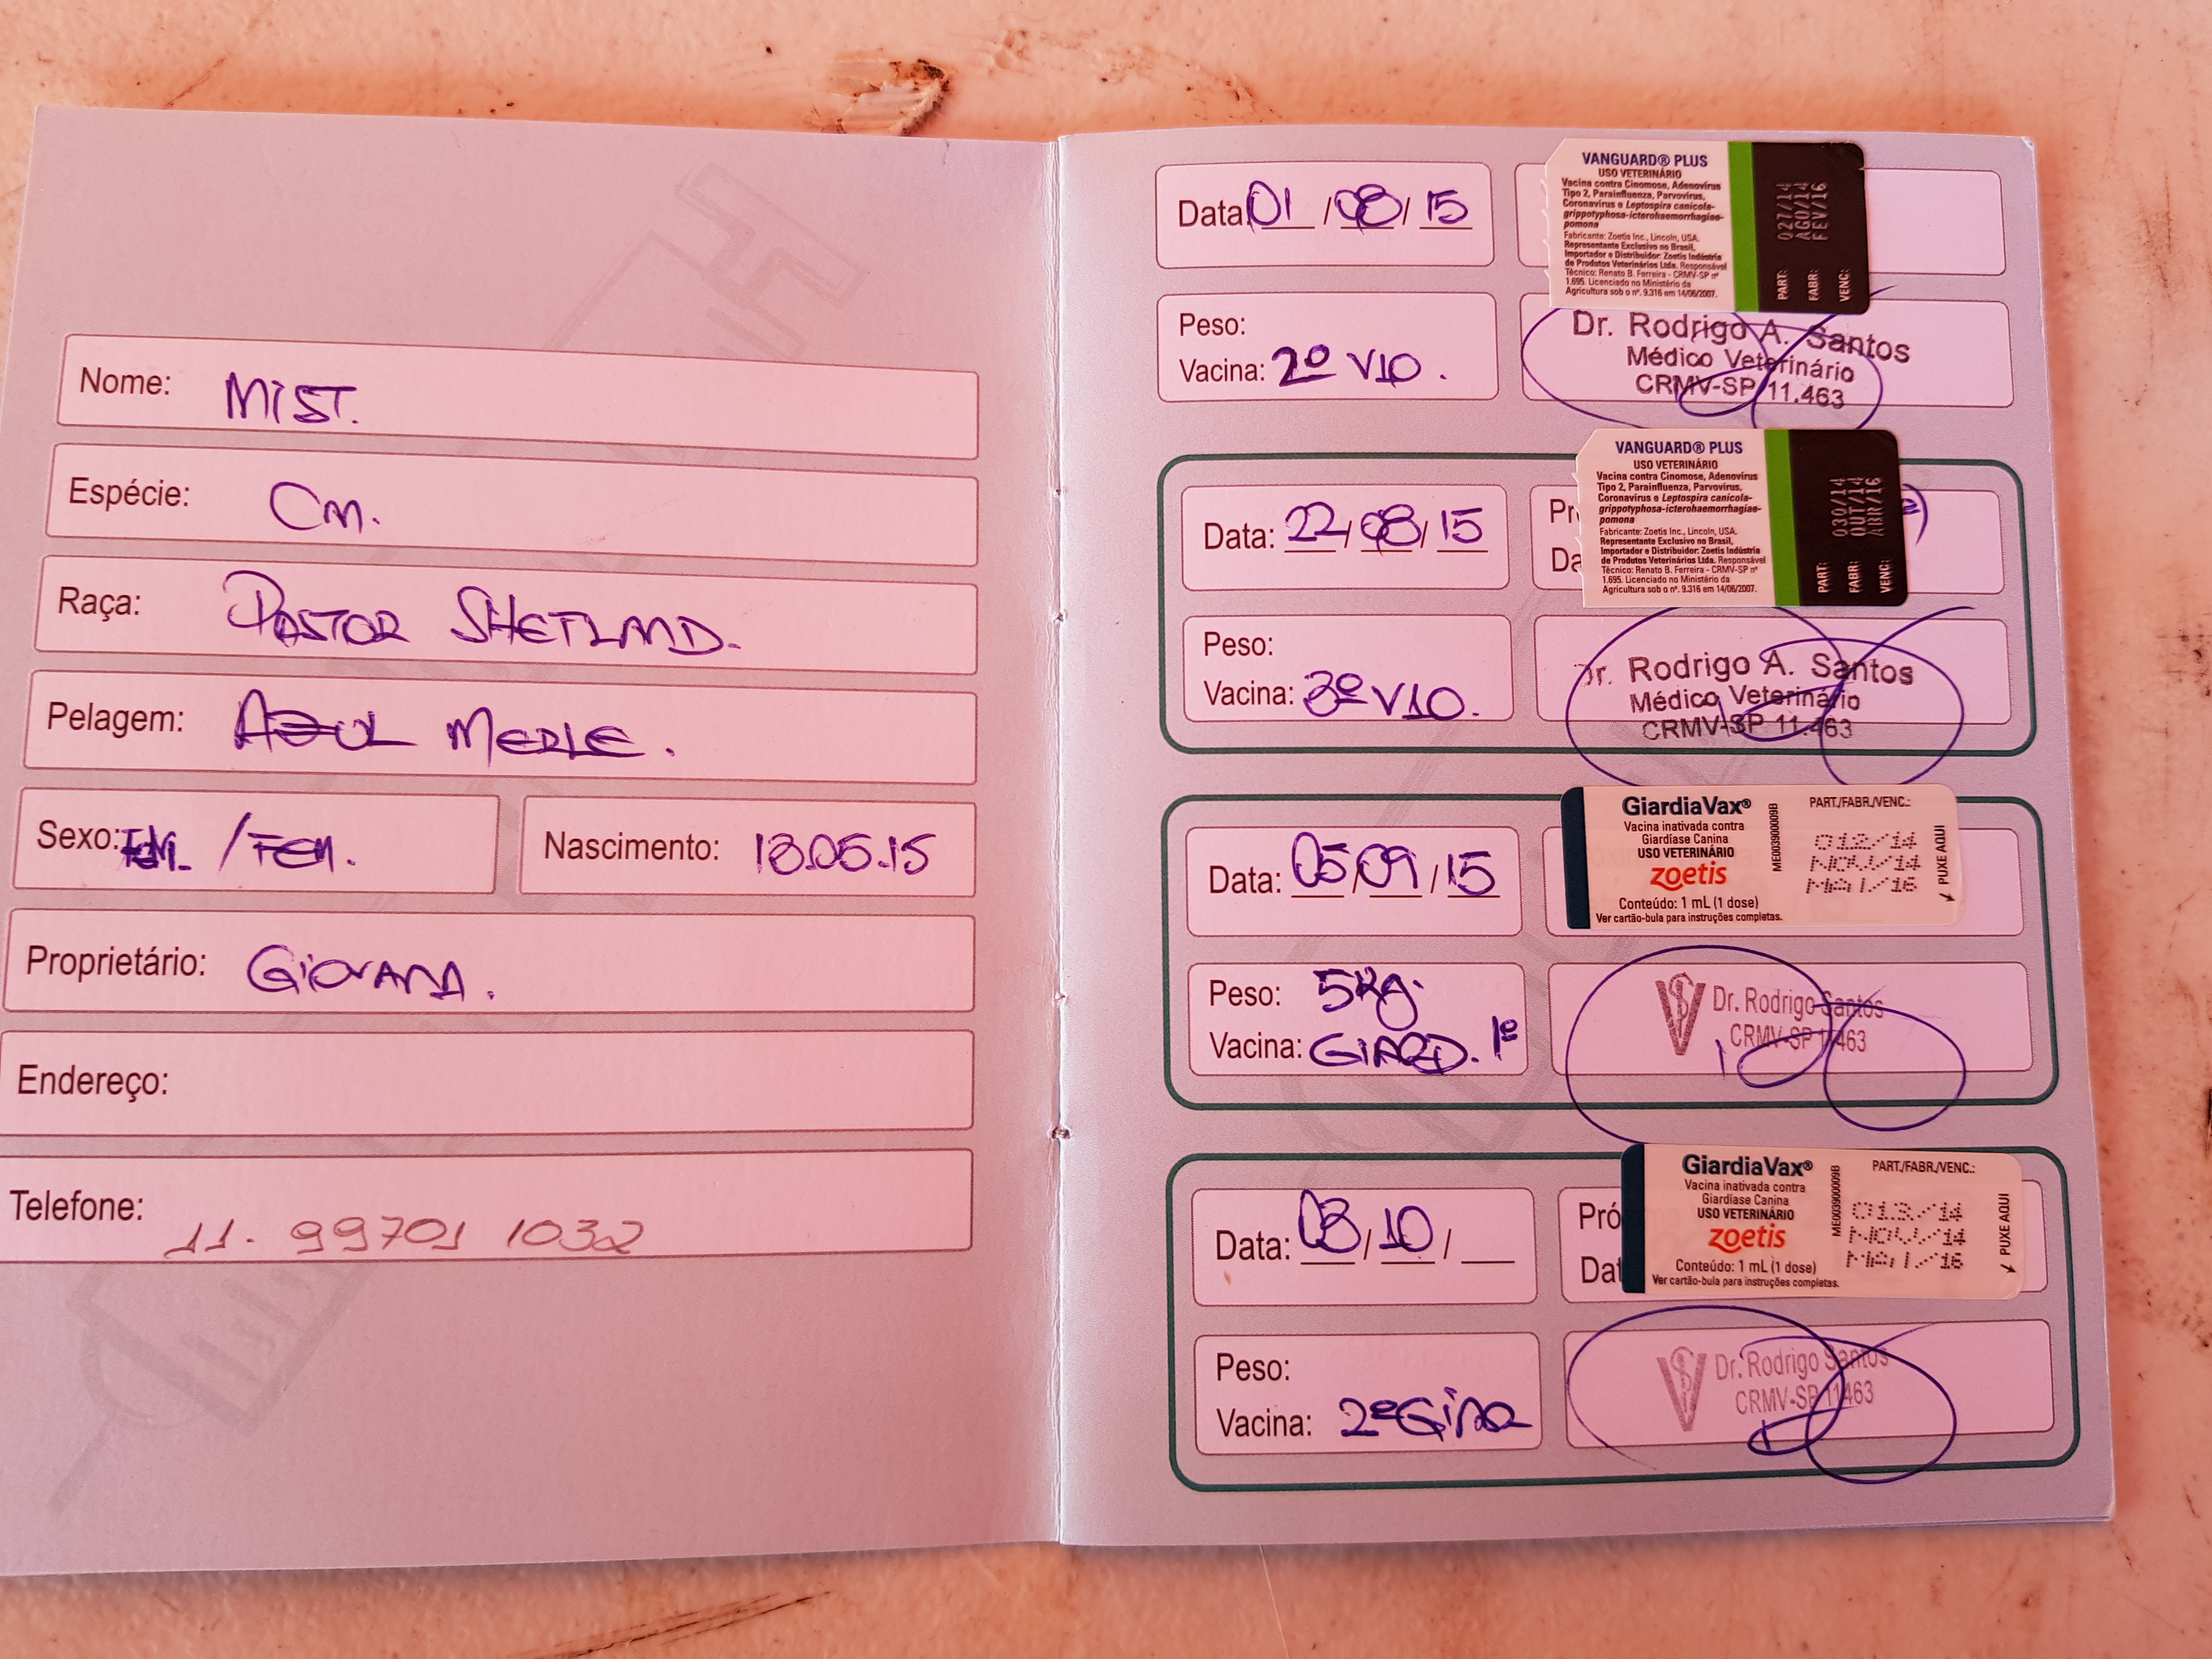 Nome: MIST.
Espécie: Cn.
Raça: PASTOR SHETLAND.
Pelagem: AZUL MERLE.
Sexo: / FEM.
Nascimento: 18.05.15
Proprietário: GIOVANA.
Endereço:
Telefone: 11. 99701 1032
Data: 01/08/15
VANGUARD® PLUS
USO VETERINÁRIO
Vacina contra Cinomose, Adenovírus
Tipo 2, Parainfluenza, Parvovírus,
Coronavírus e Leptospira canicola-
grippotyphosa-icterohaemorrhagiae-
pomona
Fabricante: Zoetis Inc., Lincoln, USA.
Representante Exclusivo no Brasil,
Importador e Distribuidor: Zoetis Indústria
de Produtos Veterinários Ltda. Responsável
Técnico: Renato B. Ferreira - CRMV-SP nº
1.695. Licenciado no Ministério da
Agricultura sob o nº. 9.316 em 14/06/2007.
PART: 027/14
FABR: AGO/14
VENC: FEV/16
Peso:
Vacina: 2º V10.
Dr. Rodrigo A. Santos
Médico Veterinário
CRMV-SP 11.463
Data: 22/08/15
Pr
Da
VANGUARD® PLUS
USO VETERINÁRIO
Vacina contra Cinomose, Adenovírus
Tipo 2, Parainfluenza, Parvovírus,
Coronavírus e Leptospira canicola-
grippotyphosa-icterohaemorrhagiae-
pomona
Fabricante: Zoetis Inc., Lincoln, USA.
Representante Exclusivo no Brasil,
Importador e Distribuidor: Zoetis Indústria
de Produtos Veterinários Ltda. Responsável
Técnico: Renato B. Ferreira - CRMV-SP nº
1.695. Licenciado no Ministério da
Agricultura sob o nº. 9.316 em 14/06/2007.
PART: 030/14
FABR: OUT/14
VENC: ABR/16
Peso:
Vacina: 3º V10.
Dr. Rodrigo A. Santos
Médico Veterinário
CRMV-SP 11.463
Data: 05/09/15
GiardiaVax®
Vacina inativada contra
Giardíase Canina
USO VETERINÁRIO
zoetis
Conteúdo: 1 mL (1 dose)
Ver cartão-bula para instruções completas.
ME003900009B
PART./FABR./VENC.:
012/14
NOV/14
MAI/16
PUXE AQUI
Peso: 5Kg.
Vacina: GIARD. 1º
Dr. Rodrigo Santos
CRMV-SP 11463
Data: 03/10/
Pró
Dat
GiardiaVax®
Vacina inativada contra
Giardíase Canina
USO VETERINÁRIO
zoetis
Conteúdo: 1 mL (1 dose)
Ver cartão-bula para instruções completas.
ME003900009B
PART./FABR./VENC.:
013/14
NOV/14
MAI/16
PUXE AQUI
Peso:
Vacina: 2º
Dr. Rodrigo Santos
CRMV-SP 11463